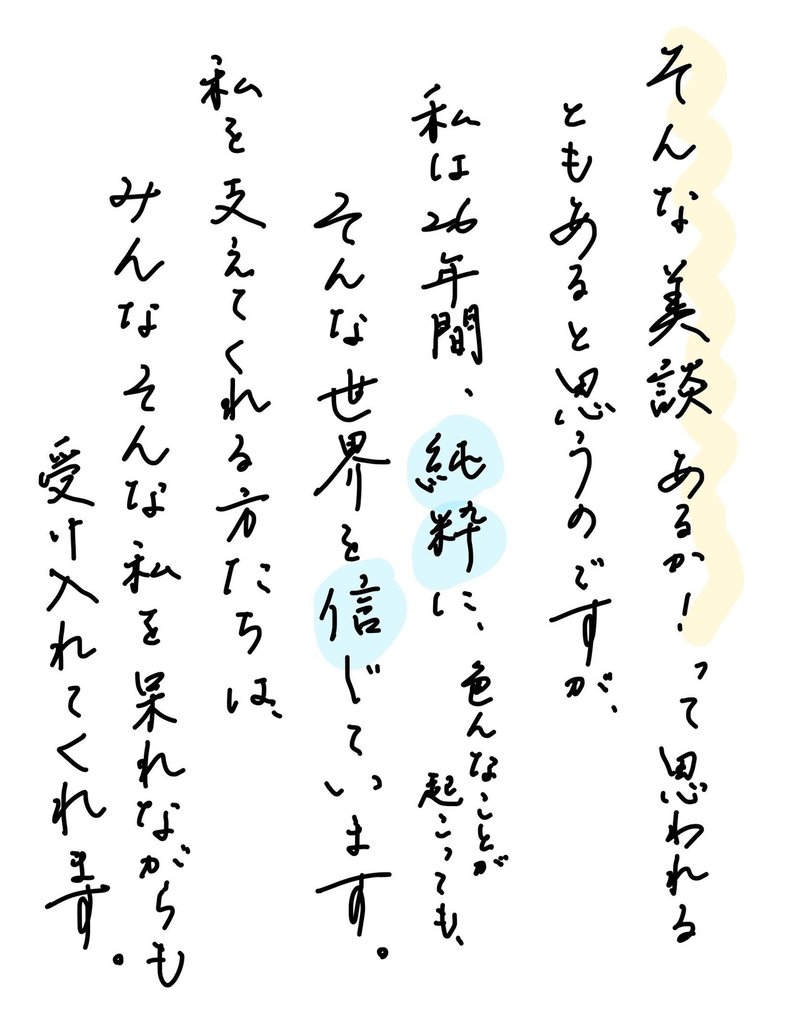 そんな美談あるか！って思われる
ともあると思うのですが、
私は26年間、純粋に、色んなことが
起こっても、
そんな世界を信じています。
私を支えてくれる方たちは、
みんなそんな私を呆れながらも
受け入れてくれます。